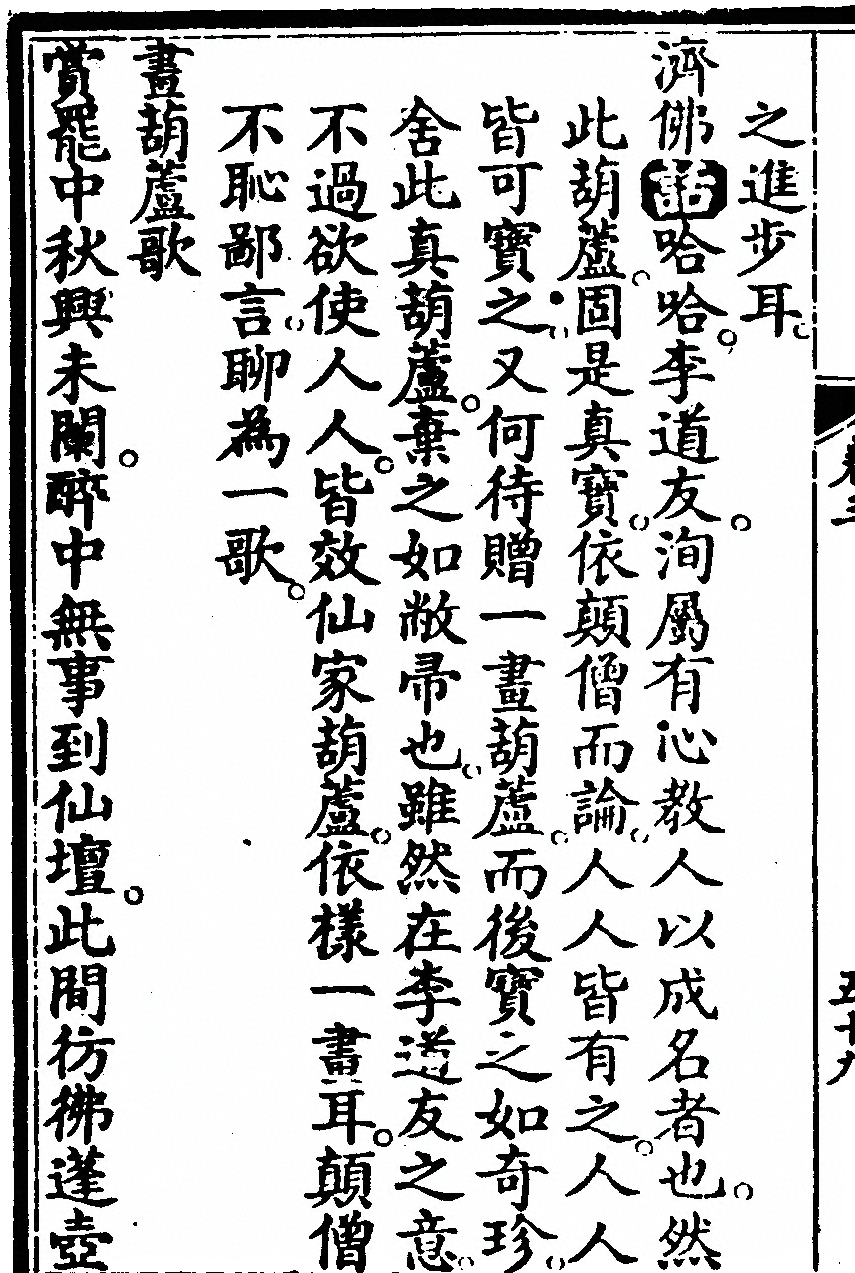 之進步耳。
濟佛話哈哈。李道友。洵屬有心教人以成名者也。然
此葫蘆。固是真寶。依顛僧而論。人人皆有之。人人
皆可寶之。又何待贈一畫葫蘆。而後寶之如奇珍。
舍此真葫蘆。棄之如敝帚也。雖然在李道友之意。
不過欲使人人。皆效仙家葫蘆。依樣一畫耳。顛僧
不恥鄙言。聊為一歌。
畫葫蘆歌
賞罷中秋興未闌。醉中無事到仙壇。此間彷彿蓬壺
五十九